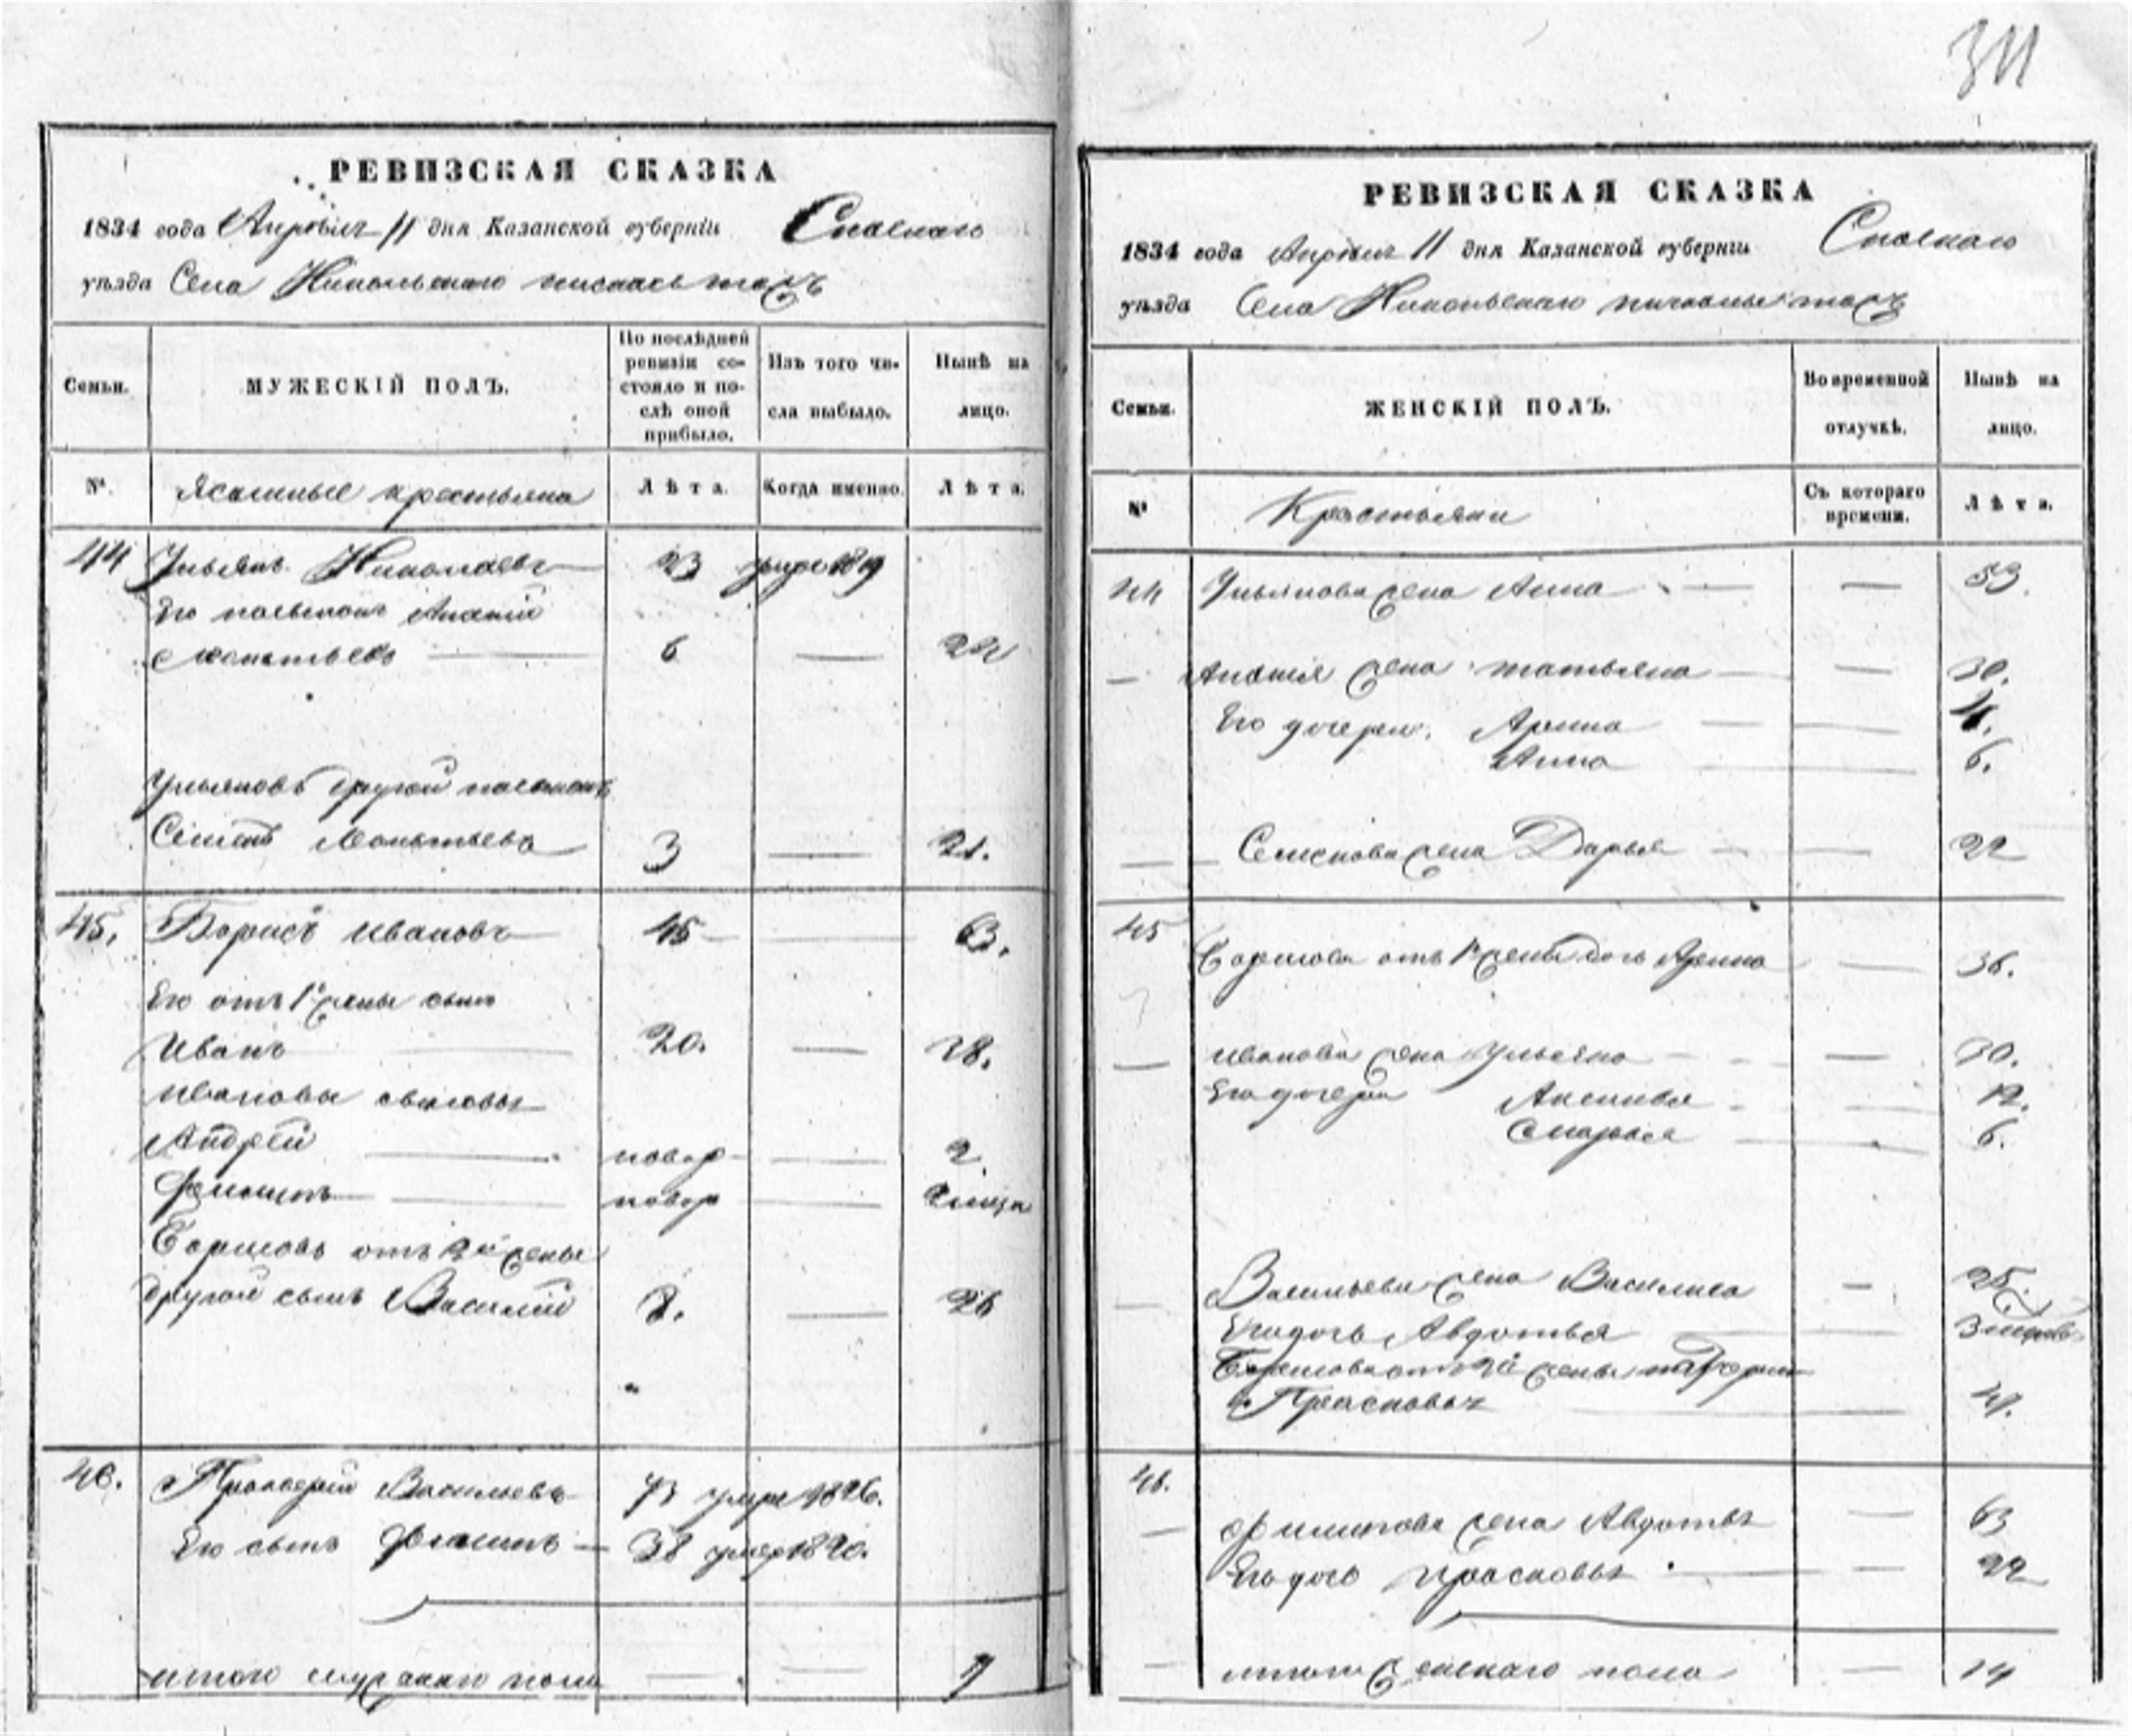 311
РЕВИЗСКАЯ СКАЗКА
1834 года Апреля 11 дня Казанской губернiи Спаскаго
уѣзда Села Никольскаго тожъ
Семьи. МУЖЕСКIЙ ПОЛЪ. По послѣдней ревизiи состояло и послѣ оной прибыло. Изъ того числа выбыло. Нынѣ на лицо.
№. Ясашные крестьяна Лѣта. Когда именно. Лѣта.
44 Ульянъ Николаевъ 23 умре 1819
Его пасынокъ Ананiй
Леонтьевъ 6 —
Ульяновъ другой пасынокъ
Семенъ Леонтьевъ 3 — 21.
45. Борисъ Ивановъ 45 — 63.
Его отъ 1й жены сынъ
Иванъ 20. — 38.
Ивановы сыновья
Андрей новор — 2.
Филипъ новор —
Борисовъ отъ 2й жены
другой сынъ Василiй 8. — 26
46. Васильевъ 73 умре 1826.
Его сынъ Филипъ — 38 умер 1820.
итого мужскаго пола — — 7
РЕВИЗСКАЯ СКАЗКА
1834 года Апреля 11 дня Казанской губернiи Спаскаго
уѣзда Села Никольскаго тожъ
Семьи. ЖЕНСКIЙ ПОЛЪ. Во временной отлучкѣ. Нынѣ на лицо.
№ Крестьянки Съ котораго времени. Лѣта.
44 Ульянова жена Анна — — 53.
— Ананiя жена Татьяна — — 30.
Его дочери. Арина — —
Анна — 6.
— Семенова жена Дарья — — 22
45 Борисова отъ 1й жены дочь Арина — 36.
— Иванова жена Ульяна — — 30.
Его дочери Аксинья — — 12.
Марья — 6.
— Васильева жена Василиса — 25.
Его дочь Авдотья — 3
Борисова отъ 2й жены
Прасковья — 41.
46.
— Филипова жена Авдотья — 63
Его дочь Прасковья — — 22
— итого женскаго пола — 14